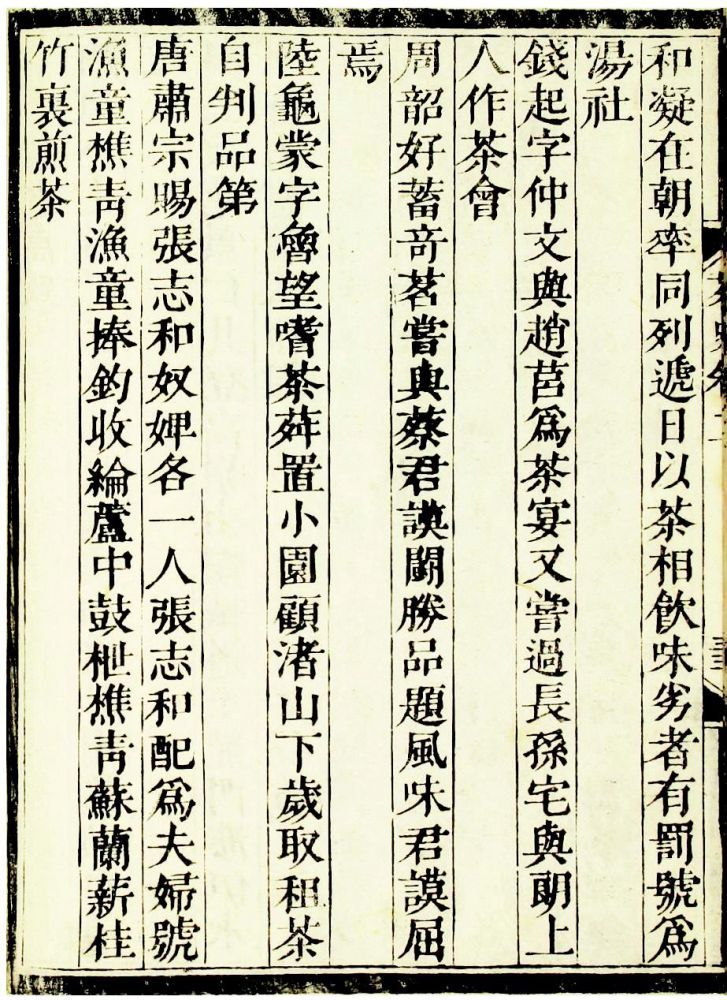 和凝在朝率同列遞日以茶相飲味劣者有罰號爲
湯社
錢起字仲文與趙莒爲茶宴又嘗過長孫宅與朗上
人作茶會
周韶好蓄奇茗嘗與蔡君謨鬪勝品題風味君謨屈
焉
陸龜蒙字魯望嗜茶荈置小園顧渚山下歲取租茶
自判品第
唐肅宗賜張志和奴婢各一人張志和配爲夫婦號
漁童樵靑漁童捧釣收綸蘆中鼓枻樵靑蘇蘭薪桂
竹裏煎茶